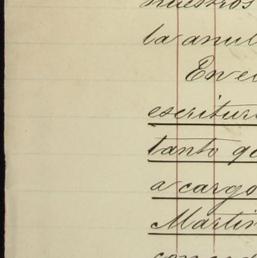 nuestros
la anul
En el
escritur
tanto qu
a cargo
Martin